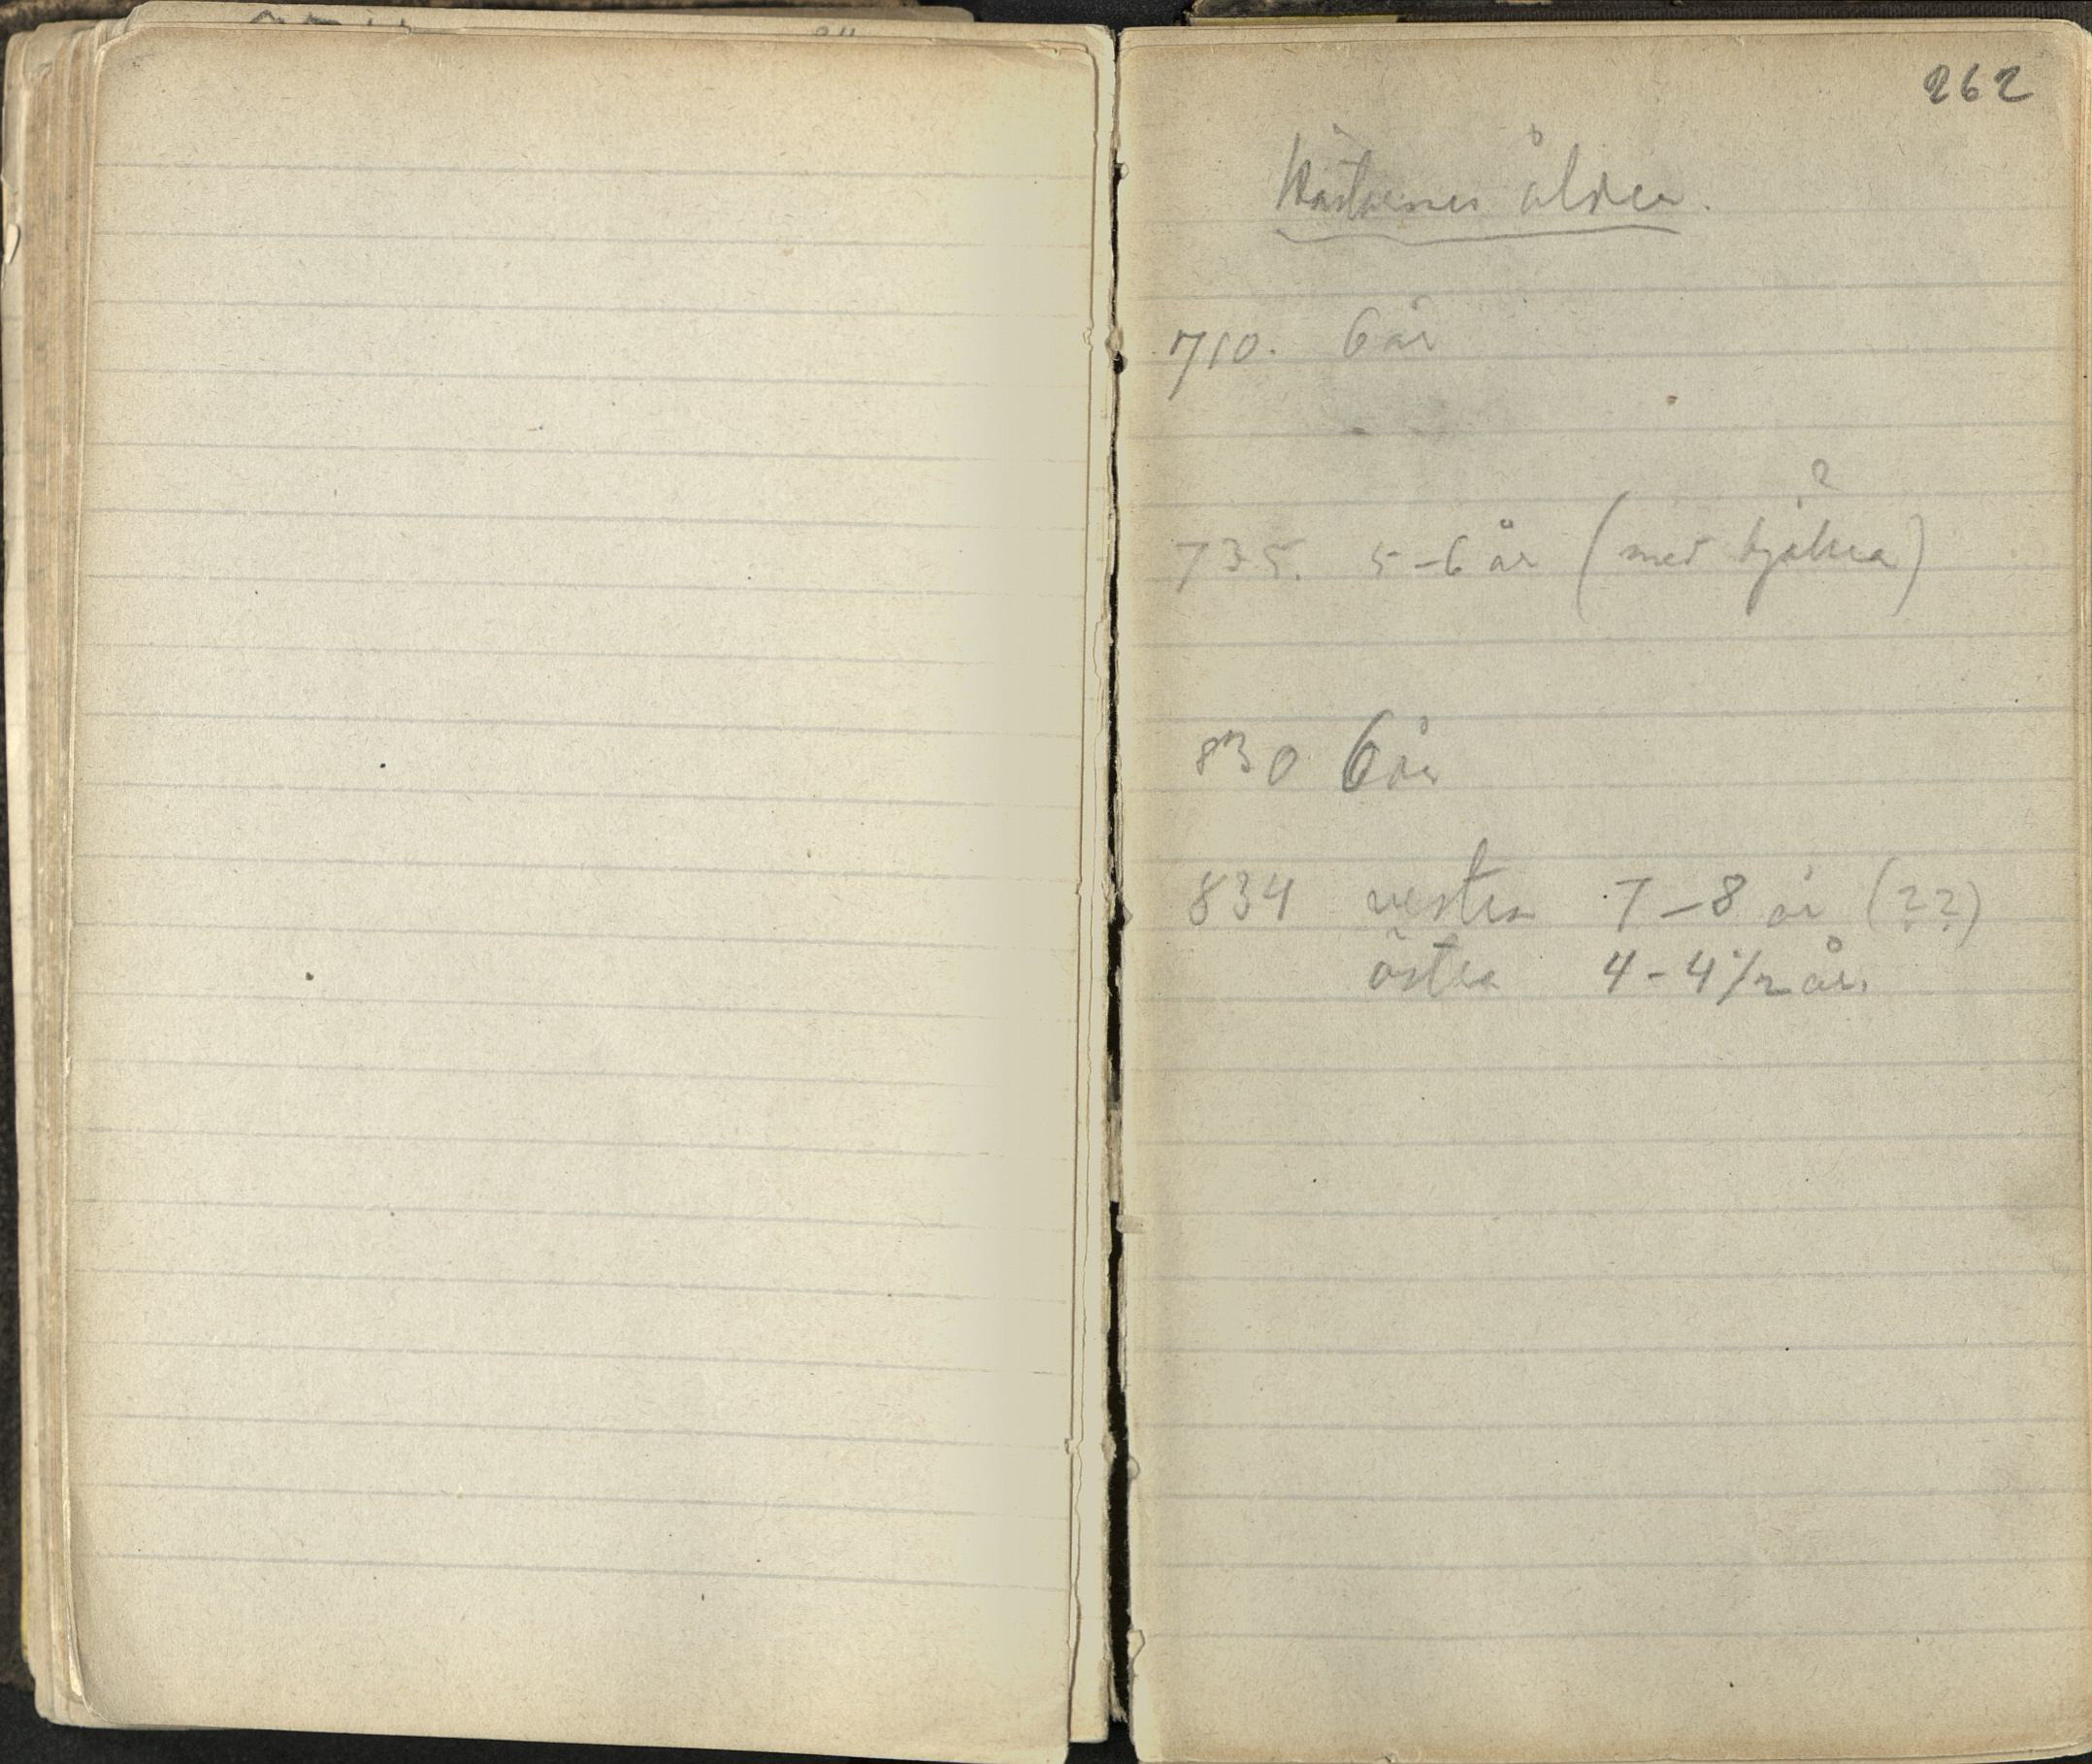 262
Hästarnes ålder.
710. 6 år
?
735. 5-6 år (med tjälra)
830 6 år
834 vestra 7-8 år (??)
östra 4-4 1/2 år.